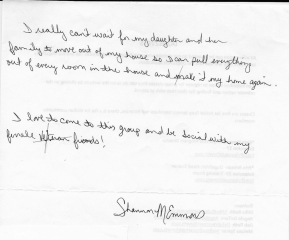 I really can't wait for my daughter and her
family to move out of my house so I can pull everything
out of every room in the house and make it my home again.
I love to come to this group and be social with my
female veteran friends!
Shannon M Emmons